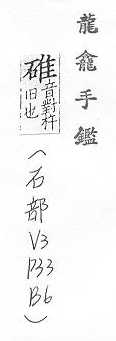 龍龕手鑑
碓
音對杵
旧也
(石部
V3
P33
B6)